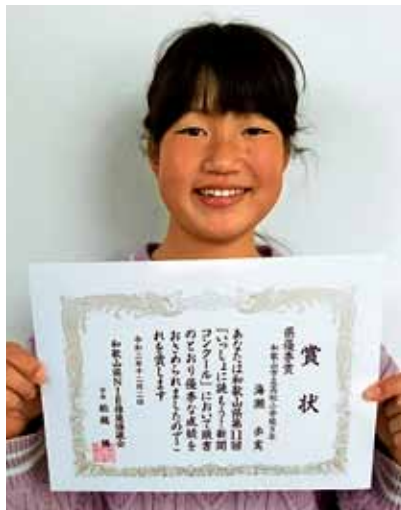 賞状
県優秀賞
あなたは和歌山県第11回
『いっしょに読もう!新聞
コンクール』において頭書
のとおり優秀な成績を
おさめられましたのでこ
れを賞します
令和二年十二月二日
和歌山県NIE推進協議会